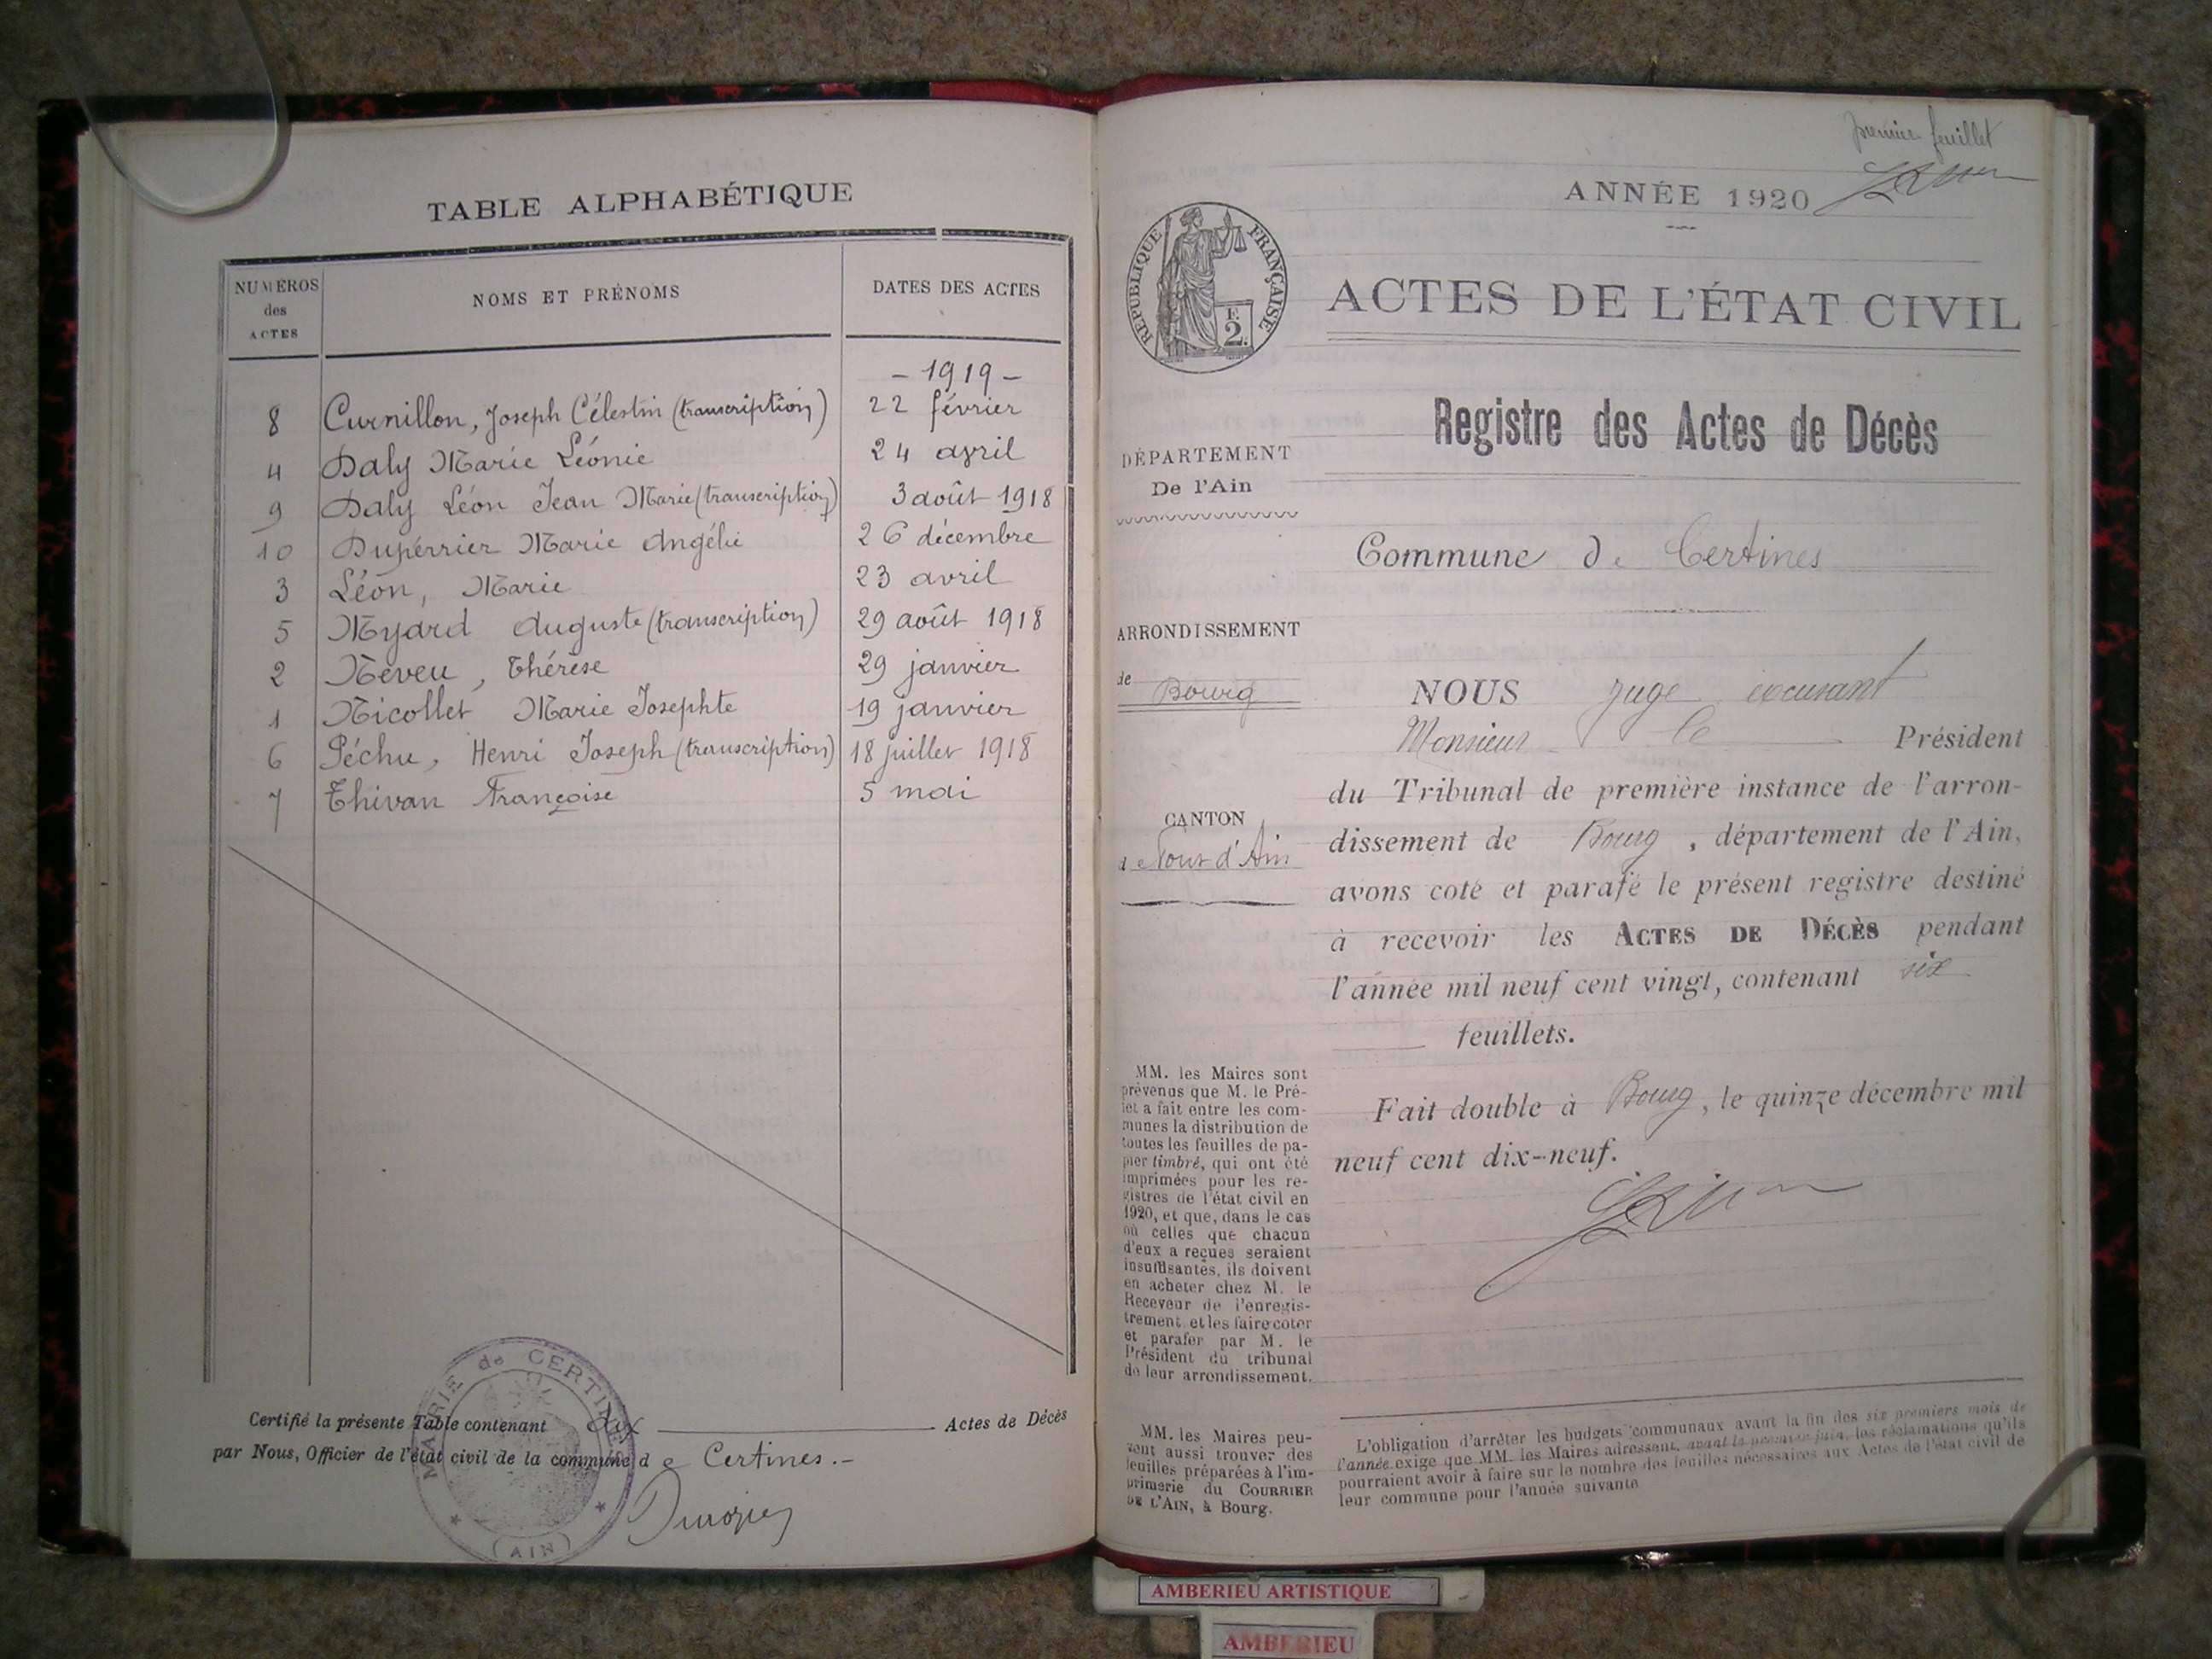 TABLE ALPHABÉTIQUE
NUMÉROS des ACTES
NOMS ET PRÉNOMS
DATES DES ACTES
- 1919 -
8 Curnillon, Joseph Célestin (transcription) 22 février
4 Daly Marie Léonie 24 avril
9 Daly Léon Jean Marie (transcription) 3 août 1918
10 Dupérrier Marie Angélie 26 décembre
3 Léon, Marie 23 avril
5 Myard Auguste (transcription) 29 août 1918
2 Neveu, Thérèse 29 janvier
1 Nicollet Marie Josephte 19 janvier
6 Péchu, Henri Joseph (transcription) 18 juillet 1918
7 Thivan Françoise 5 mai
Certifié la présente Table contenant dix Actes de Décès
par Nous, Officier de l'état civil de la commune de Certines.-
MAIRIE de CERTINES
(AIN)
premier feuillet
ANNÉE 1920
RÉPUBLIQUE FRANÇAISE
F.
2.
ACTES DE L'ÉTAT CIVIL
Registre des Actes de Décès
DÉPARTEMENT
De l'Ain
Commune de Certines
ARRONDISSEMENT
de Bourg
CANTON
de Pont d'Ain
NOUS juge excusant
Monsieur le Président
du Tribunal de première instance de l'arron-
dissement de Bourg, département de l'Ain,
avons coté et parafé le présent registre destiné
à recevoir les ACTES DE DÉCÈS pendant
l'année mil neuf cent vingt, contenant six
feuillets.
Fait double à Bourg, le quinze décembre mil
neuf cent dix-neuf.
MM. les Maires sont
prévenus que M. le Pré-
fet a fait entre les com-
munes la distribution de
toutes les feuilles de pa-
pier timbré, qui ont été
imprimées pour les re-
gistres de l'état civil en
1920, et que, dans le cas
où celles que chacun
d'eux a reçues seraient
insuffisantes, ils doivent
en acheter chez M. le
Receveur de l'enregis-
trement et les faire coter
et parafer par M. le
Président du tribunal
de leur arrondissement.
MM. les Maires peu-
vent aussi trouver des
feuilles préparées à l'im-
primerie du COURRIER
DE L'AIN, à Bourg.
L'obligation d'arrêter les budgets communaux avant la fin des six premiers mois de
l'année exige que MM. les Maires adressent, avant le premier juin, les réclamations qu'ils
pourraient avoir à faire sur le nombre des feuilles nécessaires aux Actes de l'état civil de
leur commune pour l'année suivante
AMBERIEU ARTISTIQUE
AMBERIEU